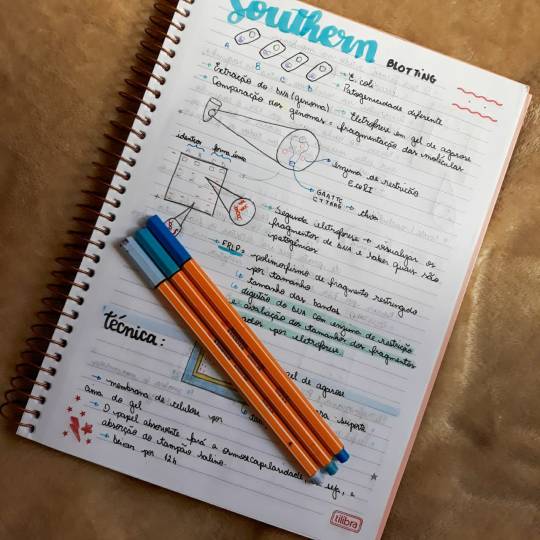 Southern
BLOTTING
A B C D
→ E. coli
→ Patogenicidade diferente
→ Extração do DNA (genoma) → Eletroforese em gel de agarose
→ Comparação dos genomas = fragmentação das moléculas
enzima de restrição
EcoRI
GAATTC
CTTAAG
→ cliva
→ Segunda eletroforese → visualizar os
fragmentos de DNA e saber quais são
patogênicos
→ FRLP:
polimorfismo de fragmento restringido
por tamanho
tamanho das bandas
digestão do DNA com enzima de restrição
e avaliação dos tamanhos dos fragmentos
por eletroforese.
técnica:
gel de agarose
suporte
→ membrana de celulose por
cima do gel
→ O papel absorvente fará a osmocapilaridade, ou seja, a
absorção do tampão salino.
→ Secar por 12h
tilibra